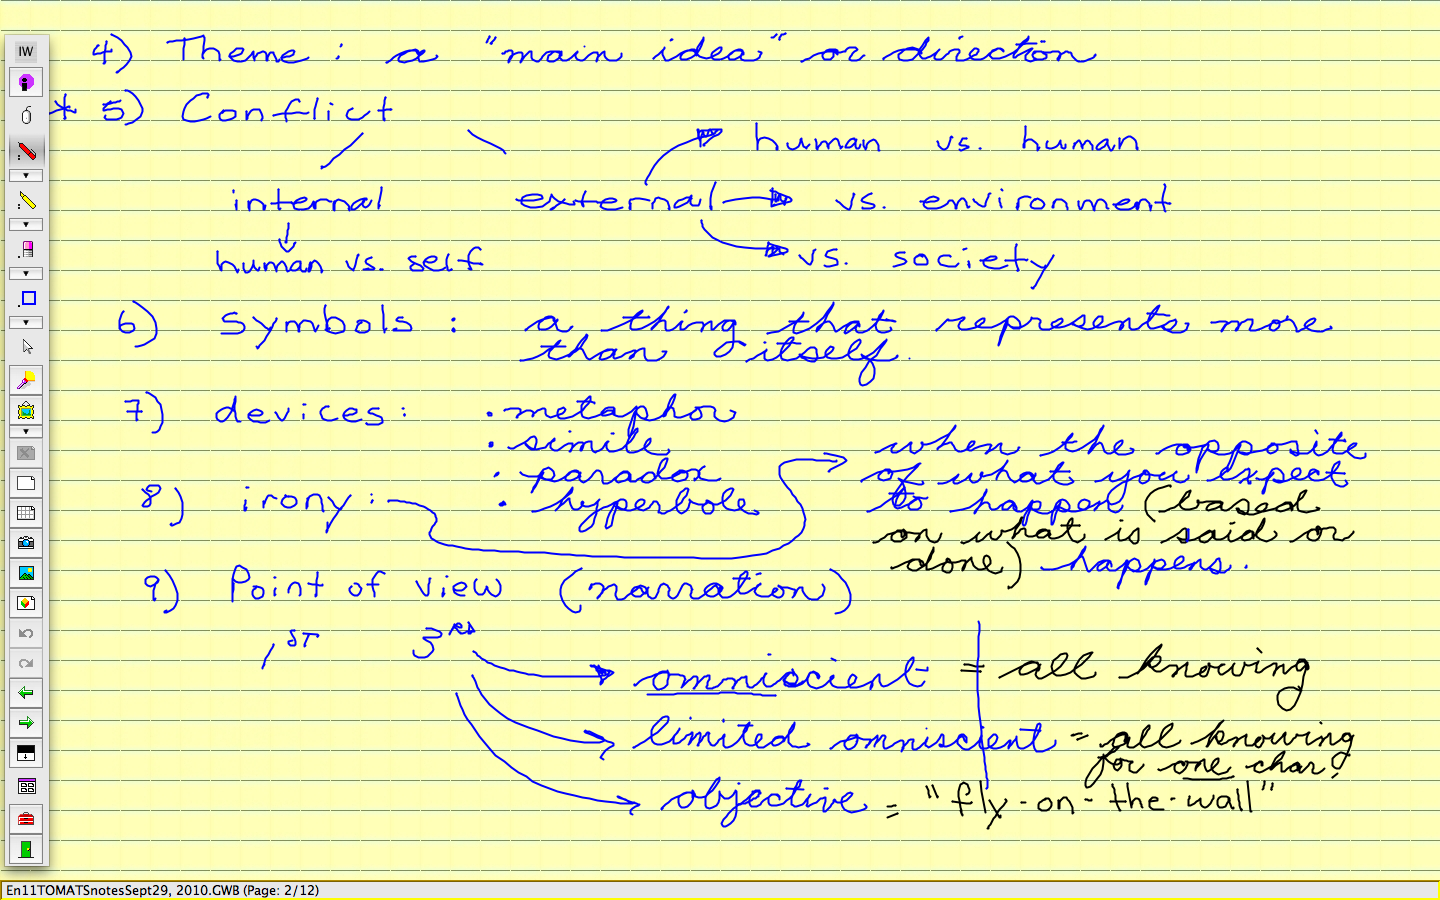 IW
4) Theme : a "main idea" or direction
* 5) Conflict
human vs. human
internal external vs. environment
human vs. self vs. society
6) symbols : a thing that represents more
than itself.
7) devices : • metaphor
• simile
• paradox
• hyperbole
8) irony : when the opposite
of what you expect
to happen (based
on what is said or
done) happens.
9) Point of view (narration)
1ST 3RD
omniscient = all knowing
limited omniscient = all knowing
for one char.
objective = "fly-on-the-wall"
En11TOMATSnotesSept29, 2010.GWB (Page: 2/12)